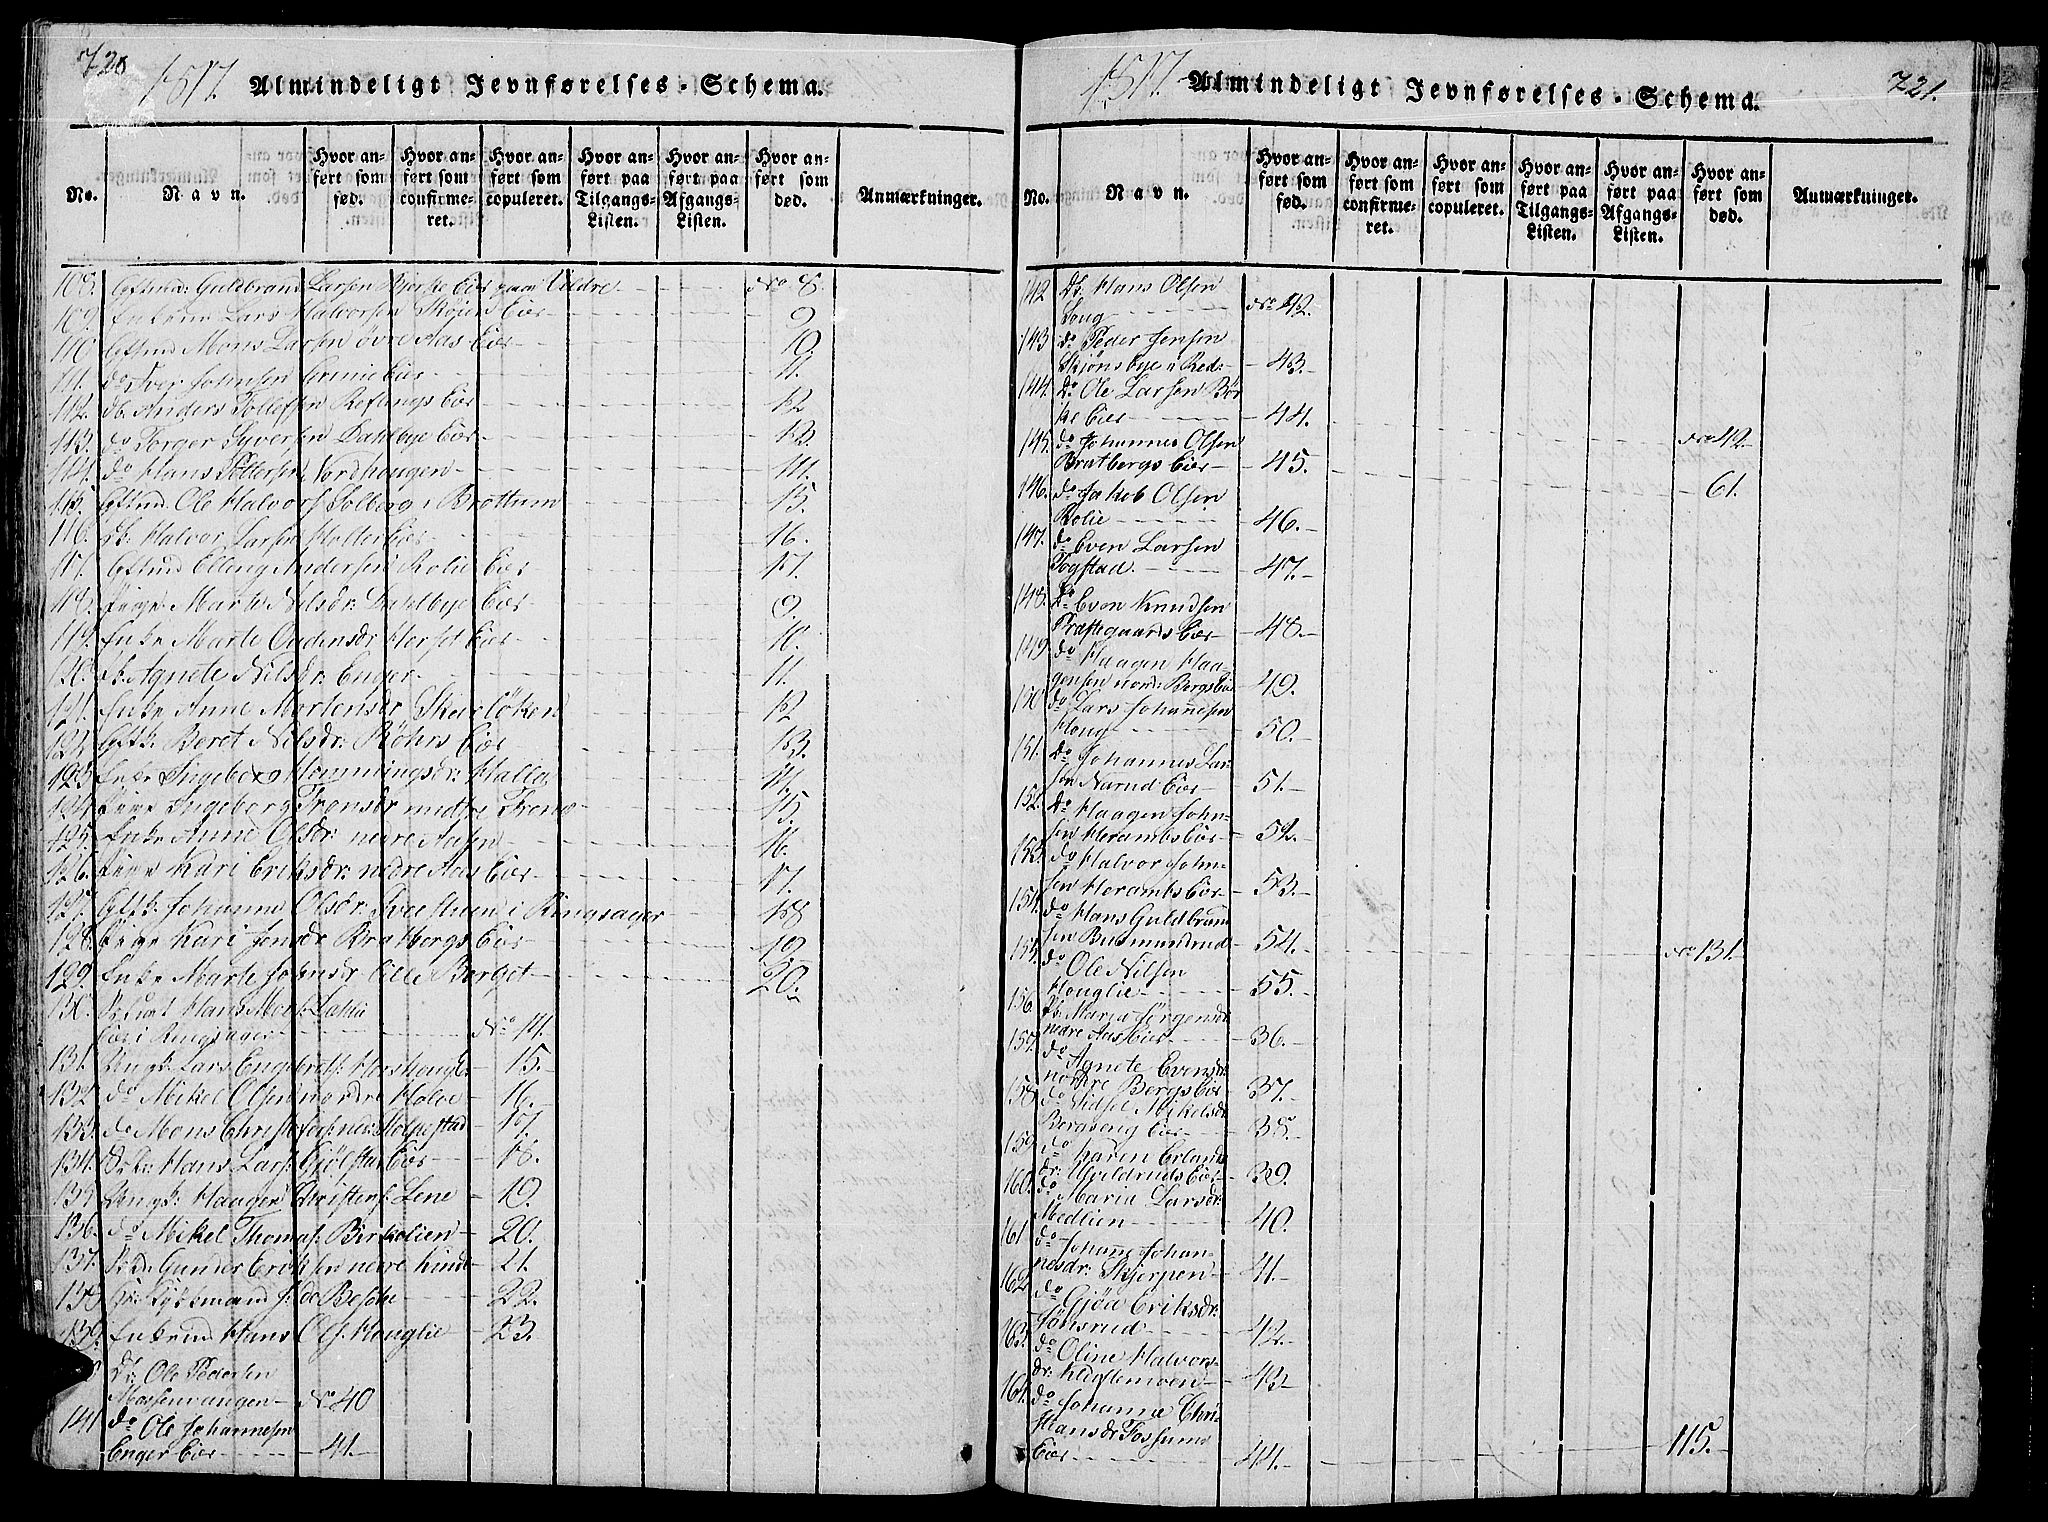 720
1817. Almindeligt Jevnførelses-Schema.
No. Navn. Hvor anført som fød. Hvor anført som confirmeret. Hvor anført som copuleret. Hvor anført paa Tilgangs-Listen. Hvor anført paa Afgangs-Listen. Hvor anført som død. Anmærkninger.
108. Guldbrand Larsen Bjerke Eie paa Veldre No 8.
109. Lars Halvorsen Skøien Eie 9.
110 Mons Larsen øvre Aas Eie 10.
111. do Iver Johnsen Eie 11.
112. do Anders Tollefsen Reflings Eie 12
113. do Torger Syversen Dahlbye Eie 13.
114. do Hans Pettersen Nordhougen 14.
115. Ole Halvors. Solberg i Brøttum 15.
116. Halvor Larsen Holter Eie 16.
117. Elling Andersen Rolie Eie 17.
118. Pige Marte Nilsdr: Dahlbye Eie 9.
119. Enke Marte Oudensdr Herset Eie 10.
120. Agnete Nilsdr: Enger 11.
121. Enke Anne Mortensdr Skarløken 12
122. Beret Nilsdr: Røhrs Eie 13.
123. Enke Ingeborg Hemmingsdr: Halla 14.
124. Pige Ingeborg Fransdr midtre Freng 15.
125. Enke Anne Olsdr: nedre Aasen 16.
126. Pige Kari Eriksdr: nedre Aas Eie 17.
127. Gftk. Johanne Olsdr: Sveesteen i Ringsager 18
128. Pige Kari Jensdr Bratbergs Eie 19
129. Enke Marte Johnsdr Lille Berget 20.
130. Hans
Eie i Ringsager No 14.
131. Ungk. Lars Engebrets. Horshoug E. 15.
132 do Mikel Olsen nordre Holve 16.
133. do Mons Christofersen Stolpestad 17.
134. Hans Lars. Gjølstad Eie 18.
135 Ungk: Haagen Christens. Lene 19.
136. do Mikel Thomas. Birkelien 20.
137. Gunder Eriksen nedre Kinde 21.
138. de Besche 22.
139. Enkemd Hans Ols. Houglie 23.
Db. Ole Pedersen
Mossenvangen No 40
141 do Ole Johannesen
Enger Eie 41.
1817. Almindeligt Jevnførelses-Schema. 721.
No. Navn. Hvor anført som fød. Hvor anført som confirmeret. Hvor anført som copuleret. Hvor anført paa Tilgangs-Listen. Hvor anført paa Afgangs-Listen. Hvor anført som død. Anmærkninger.
142 Db. Hans Olsen
Houg No 42.
143 do Peder Jensen
Skjønsbye i Red: 43.
144. do Ole Larsen Bjør
ke Eie 44.
145. do Johannes Olsen No 42
Bratbergs Eie 45.
146. do Jakob Olsen 61.
Rolie 46.
147. do Even Larsen
Togstad. 47.
148. do Even Knudsen
Præstegaards Eie 48.
149 do Haagen Haa-
gensen nord: Bergs Eie 49.
150 do Lars Johannesen
Houg 50.
151. do Johannes Lar
sen Narud Eie 51.
152. do Haagen John-
sen Herambs Eie 52.
153. do Halvor John-
sen Herambs Eie 53.
154. do Hans Guldbrand
sen Budmundrud 54.
155. do Ole Nilsen No 131.
Houglie 55.
156. Pb. Maria Jørgensdr
nedre Aas Eie 36.
157. do Agnete Evensdr
nordre Bergs Eie 37.
158. do Sidsel Mikelsdr
Bergseng Eie 38.
159. do Karen Erlands
dr: Ulvildruds Eie 39.
160. do Maria Larsdr.
Medlien 40.
161 do Johanne Johan-
nesdr: Skjerpen 41.
162 do Gjøa Eriksdr:
Jønsrud 42.
163. do Oline Halvors-
dr: Kløftemoen 43.
164. do Johanne Chri-
stiansdr Fossums
Eie 44. 115.